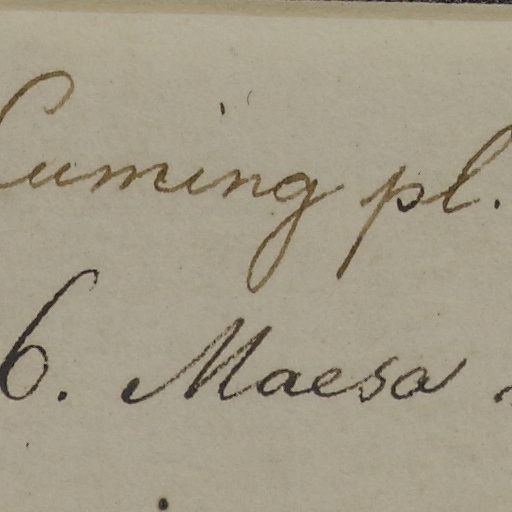 Cuming pl.
6. Maesa